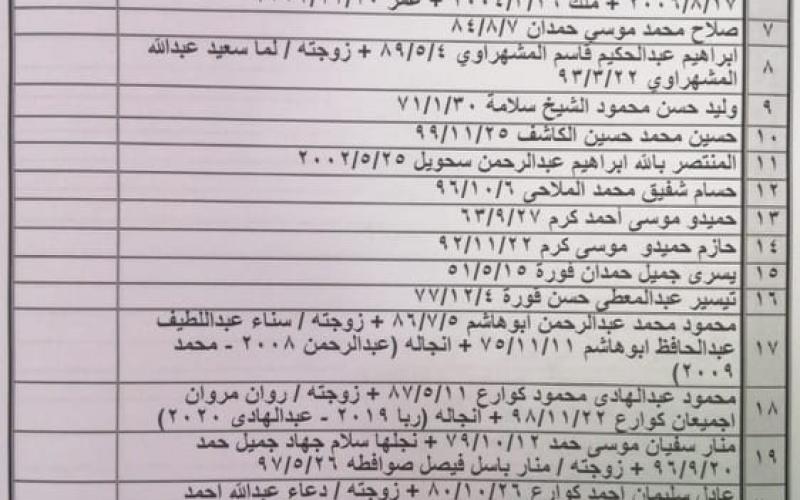 ٢٠٠٦/٨/١٧ + ملك
٧ صلاح محمد موسي حمدان ٨٤/٨/٧
٨ ابراهيم عبدالحكيم قاسم المشهراوي ٨٩/٥/٤ + زوجته / لما سعيد عبدالله
المشهراوي ٩٣/٣/٢٢
٩ وليد حسن محمود الشيخ سلامة ٧١/١/٣٠
١٠ حسين محمد حسين الكاشف ٩٩/١١/٢٥
١١ المنتصر بالله ابراهيم عبدالرحمن سحويل ٢٠٠٢/٥/٢٥
١٢ حسام شفيق محمد الملاحي ٩٦/١٠/٦
١٣ حميدو موسى أحمد كرم ٦٣/٩/٢٧
١٤ حازم حميدو موسى كرم ٩٢/١١/٢٢
١٥ يسرى جميل حمدان فورة ٥١/٥/١٥
١٦ تيسير عبدالمعطي حسن فورة ٧٧/١٢/٤
١٧ محمود محمد عبدالرحمن ابوهاشم ٨٦/٧/٥ + زوجته / سناء عبداللطيف
عبدالحافظ ابوهاشم ٧٥/١١/١١ + انجاله (عبدالرحمن ٢٠٠٨ - محمد
٢٠٠٩)
١٨ محمود عبدالهادى محمود كوارع ٨٧/٥/١١ + زوجته / روان مروان
اجميعان كوارع ٩٨/١١/٢٢ + انجاله (ربا ٢٠١٩ - عبدالهادى ٢٠٢٠)
١٩ منار سفيان موسى حمد ٧٩/١٠/١٢ + نجلها سلام جهاد جميل حمد
٩٦/٩/٢٠ + زوجته / منار باسل فيصل صوافطه ٩٧/٥/٢٦
عادل سليمان احمد كوارع ٨٠/١٠/٢٦ + زوجته / دعاء عبدالله احمد